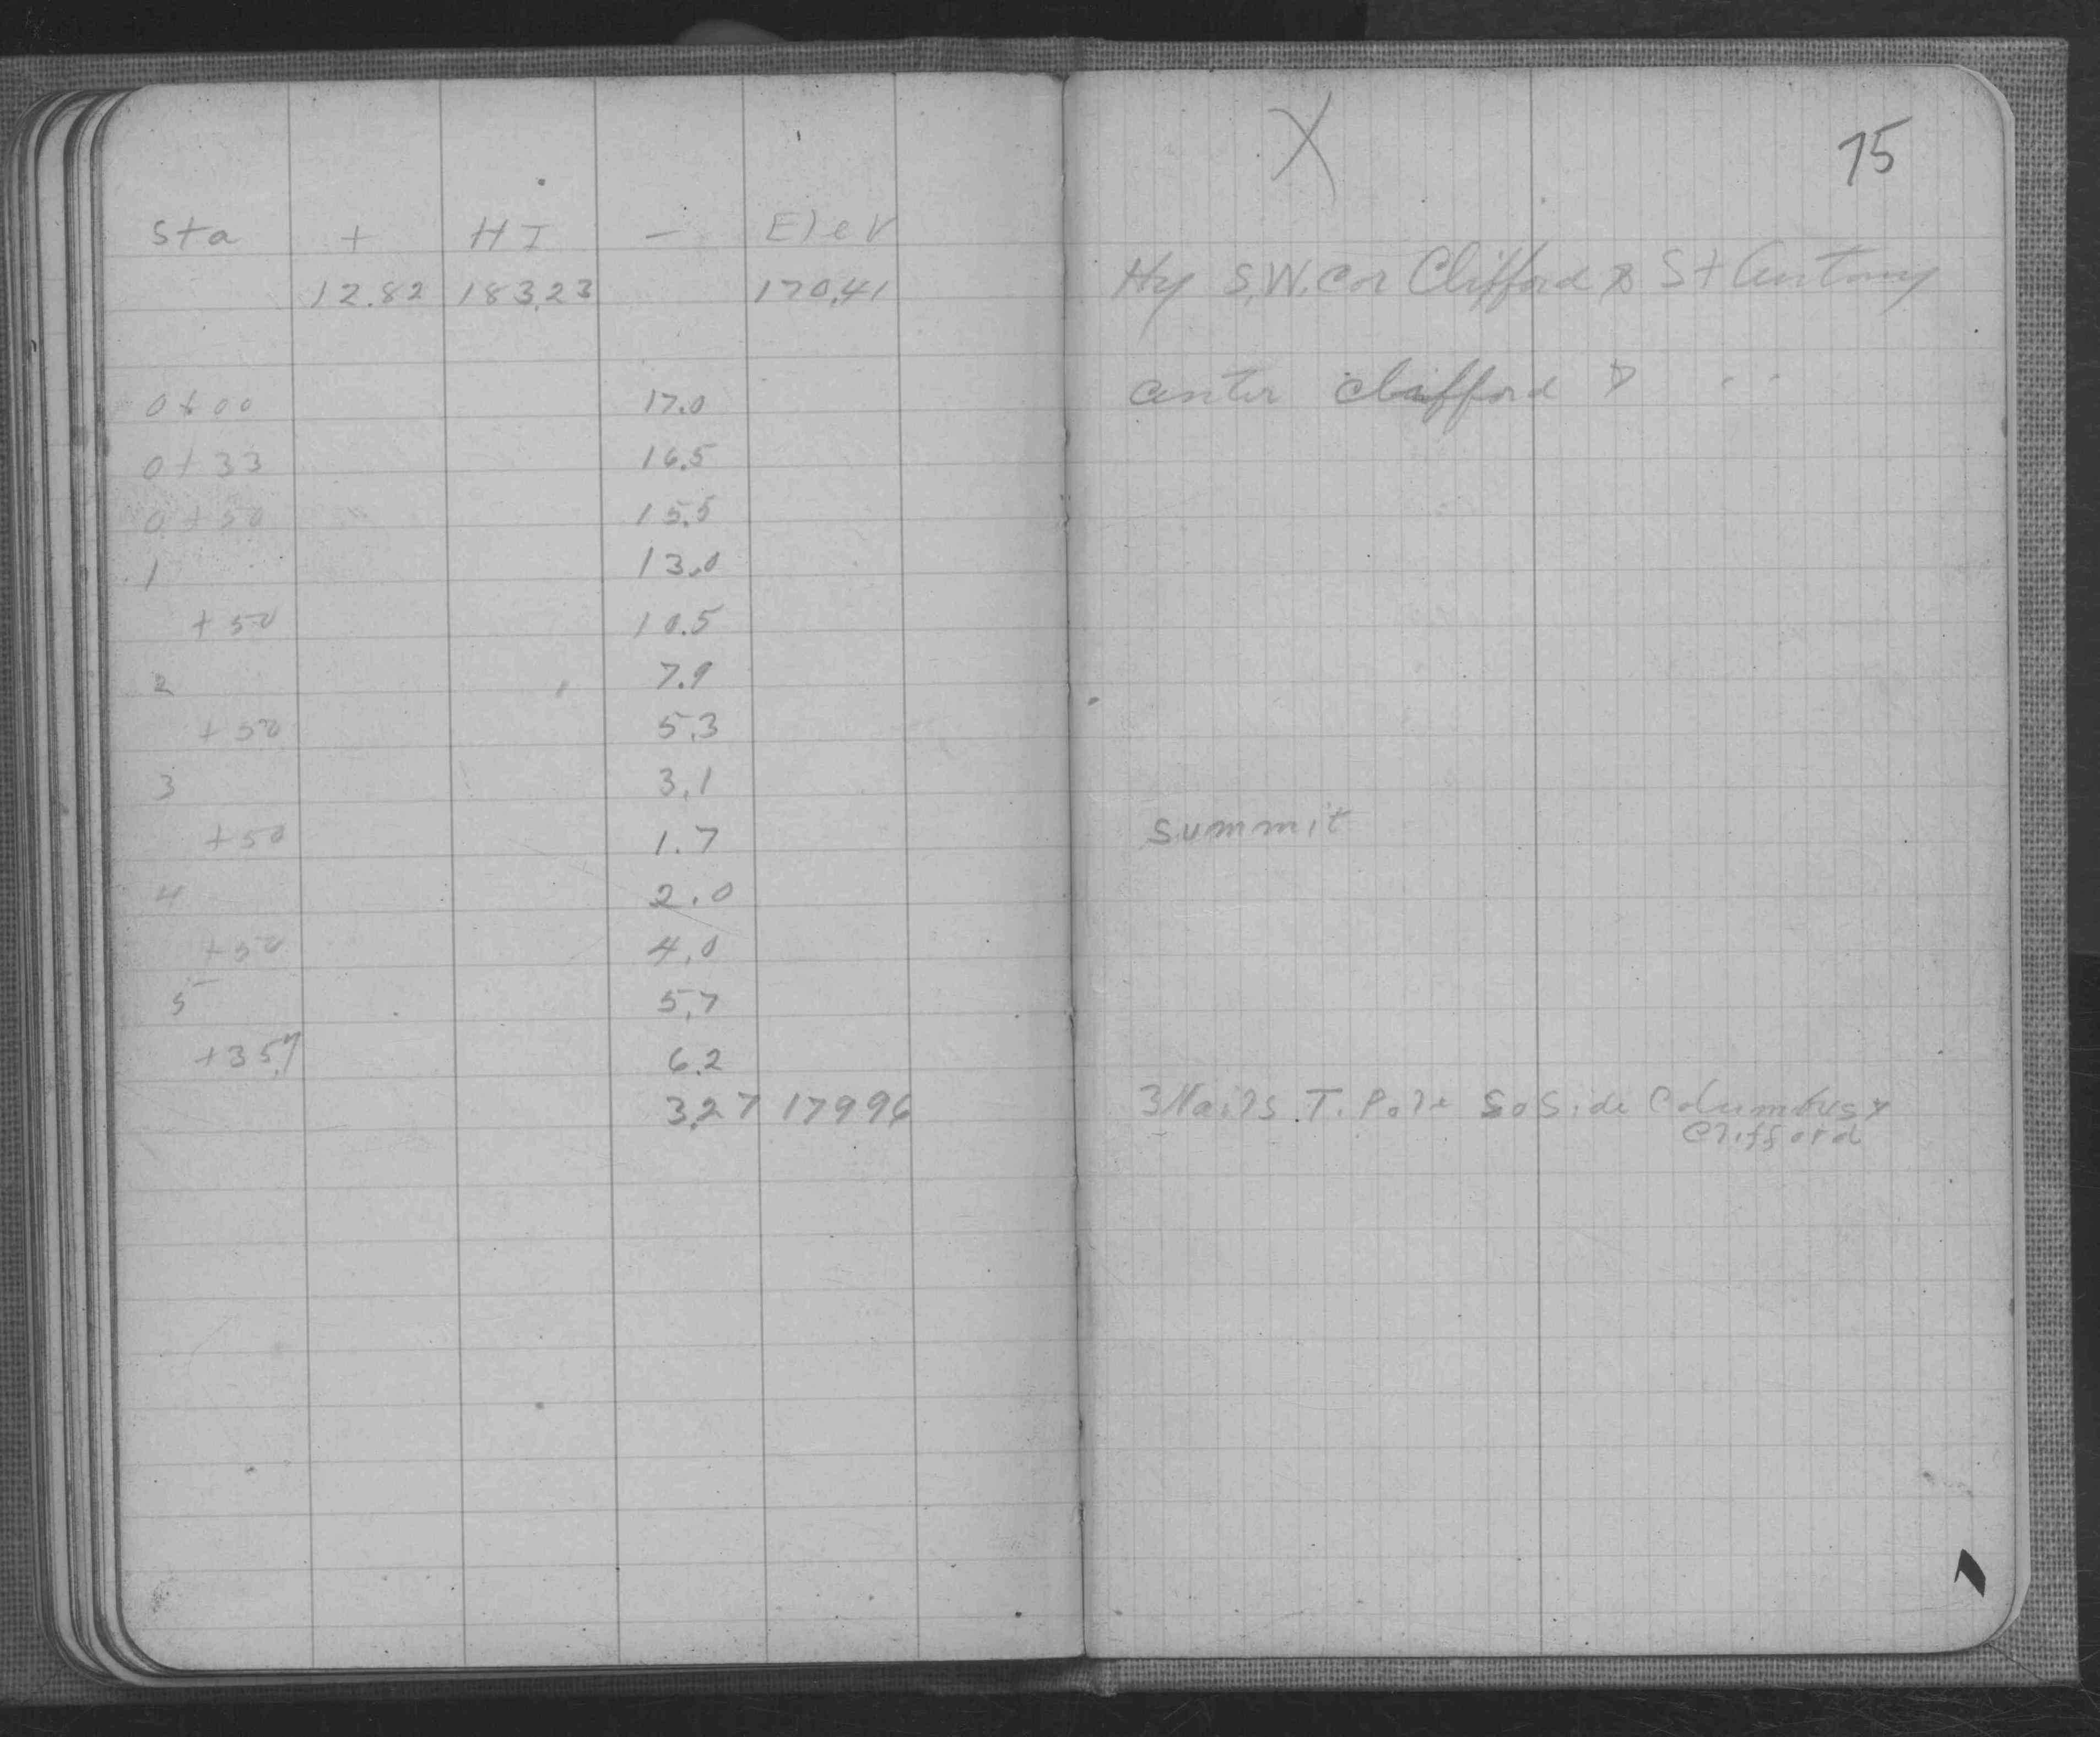 X
75
Sta + HI - Elev
12.82 183.23 170.41 Hy S.W. Cor Clifford & St Antony
0+00 17.0 center Clifford & " "
0+33 16.5
0+50 15.5
1 13.0
+50 10.5
2 7.9
+50 5.3
3 3.1
+50 1.7 Summit
4 2.0
+50 4.0
5 5.7
+35.7 6.2
3.27 179.96 3 Nails T. Pole So Side Columbus &
Clifford